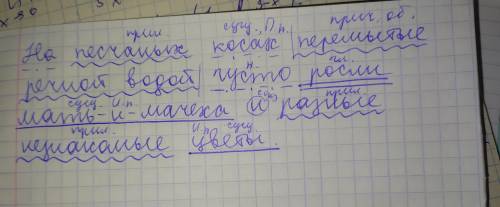 прил. сущ., П.п. прич. об.
На песчаных косах |перемытые
н. гл.
речной водой| густо росли
сущ. И.п. союз прил.
мать-и-мачеха и разные
прил. И.п. сущ.
незнакомые цветы.